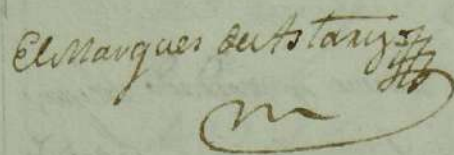 El Marques de Astariz